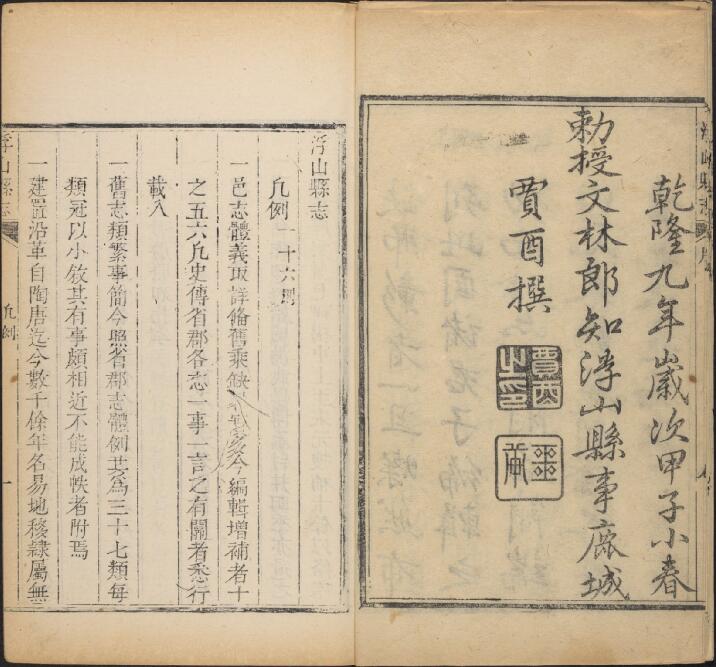 乾隆九年歲次甲子小春
勅授文林郎知浮山縣事鹿城
賈酉撰
賈酉之印
浮山縣志
凡例二十六則
一邑志體義取詳脩舊乘缺今編輯增補者十
之五六凡史傳省郡各志一事一言之有關者悉行
載入
一舊志類繁事簡今照省郡志體例共為三十七類每
類冠以小敘其有事頗相近不能成帙者附焉
一建置沿革自陶唐迄今數千餘年名易地移隸屬無
浮山縣志
凡例
一